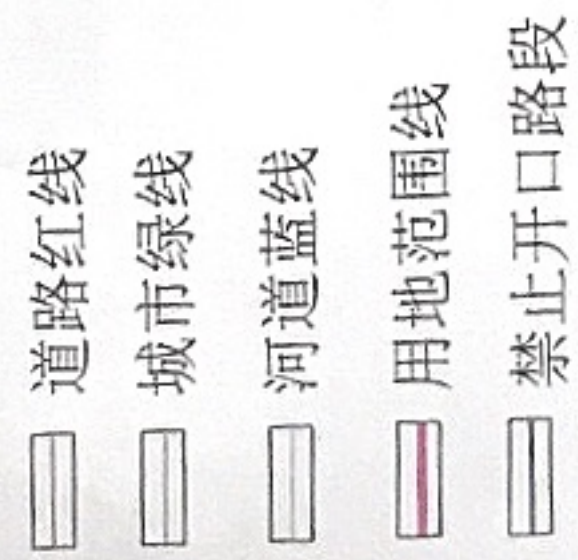 道路红线
城市绿线
河道蓝线
用地范围线
禁止开口路段